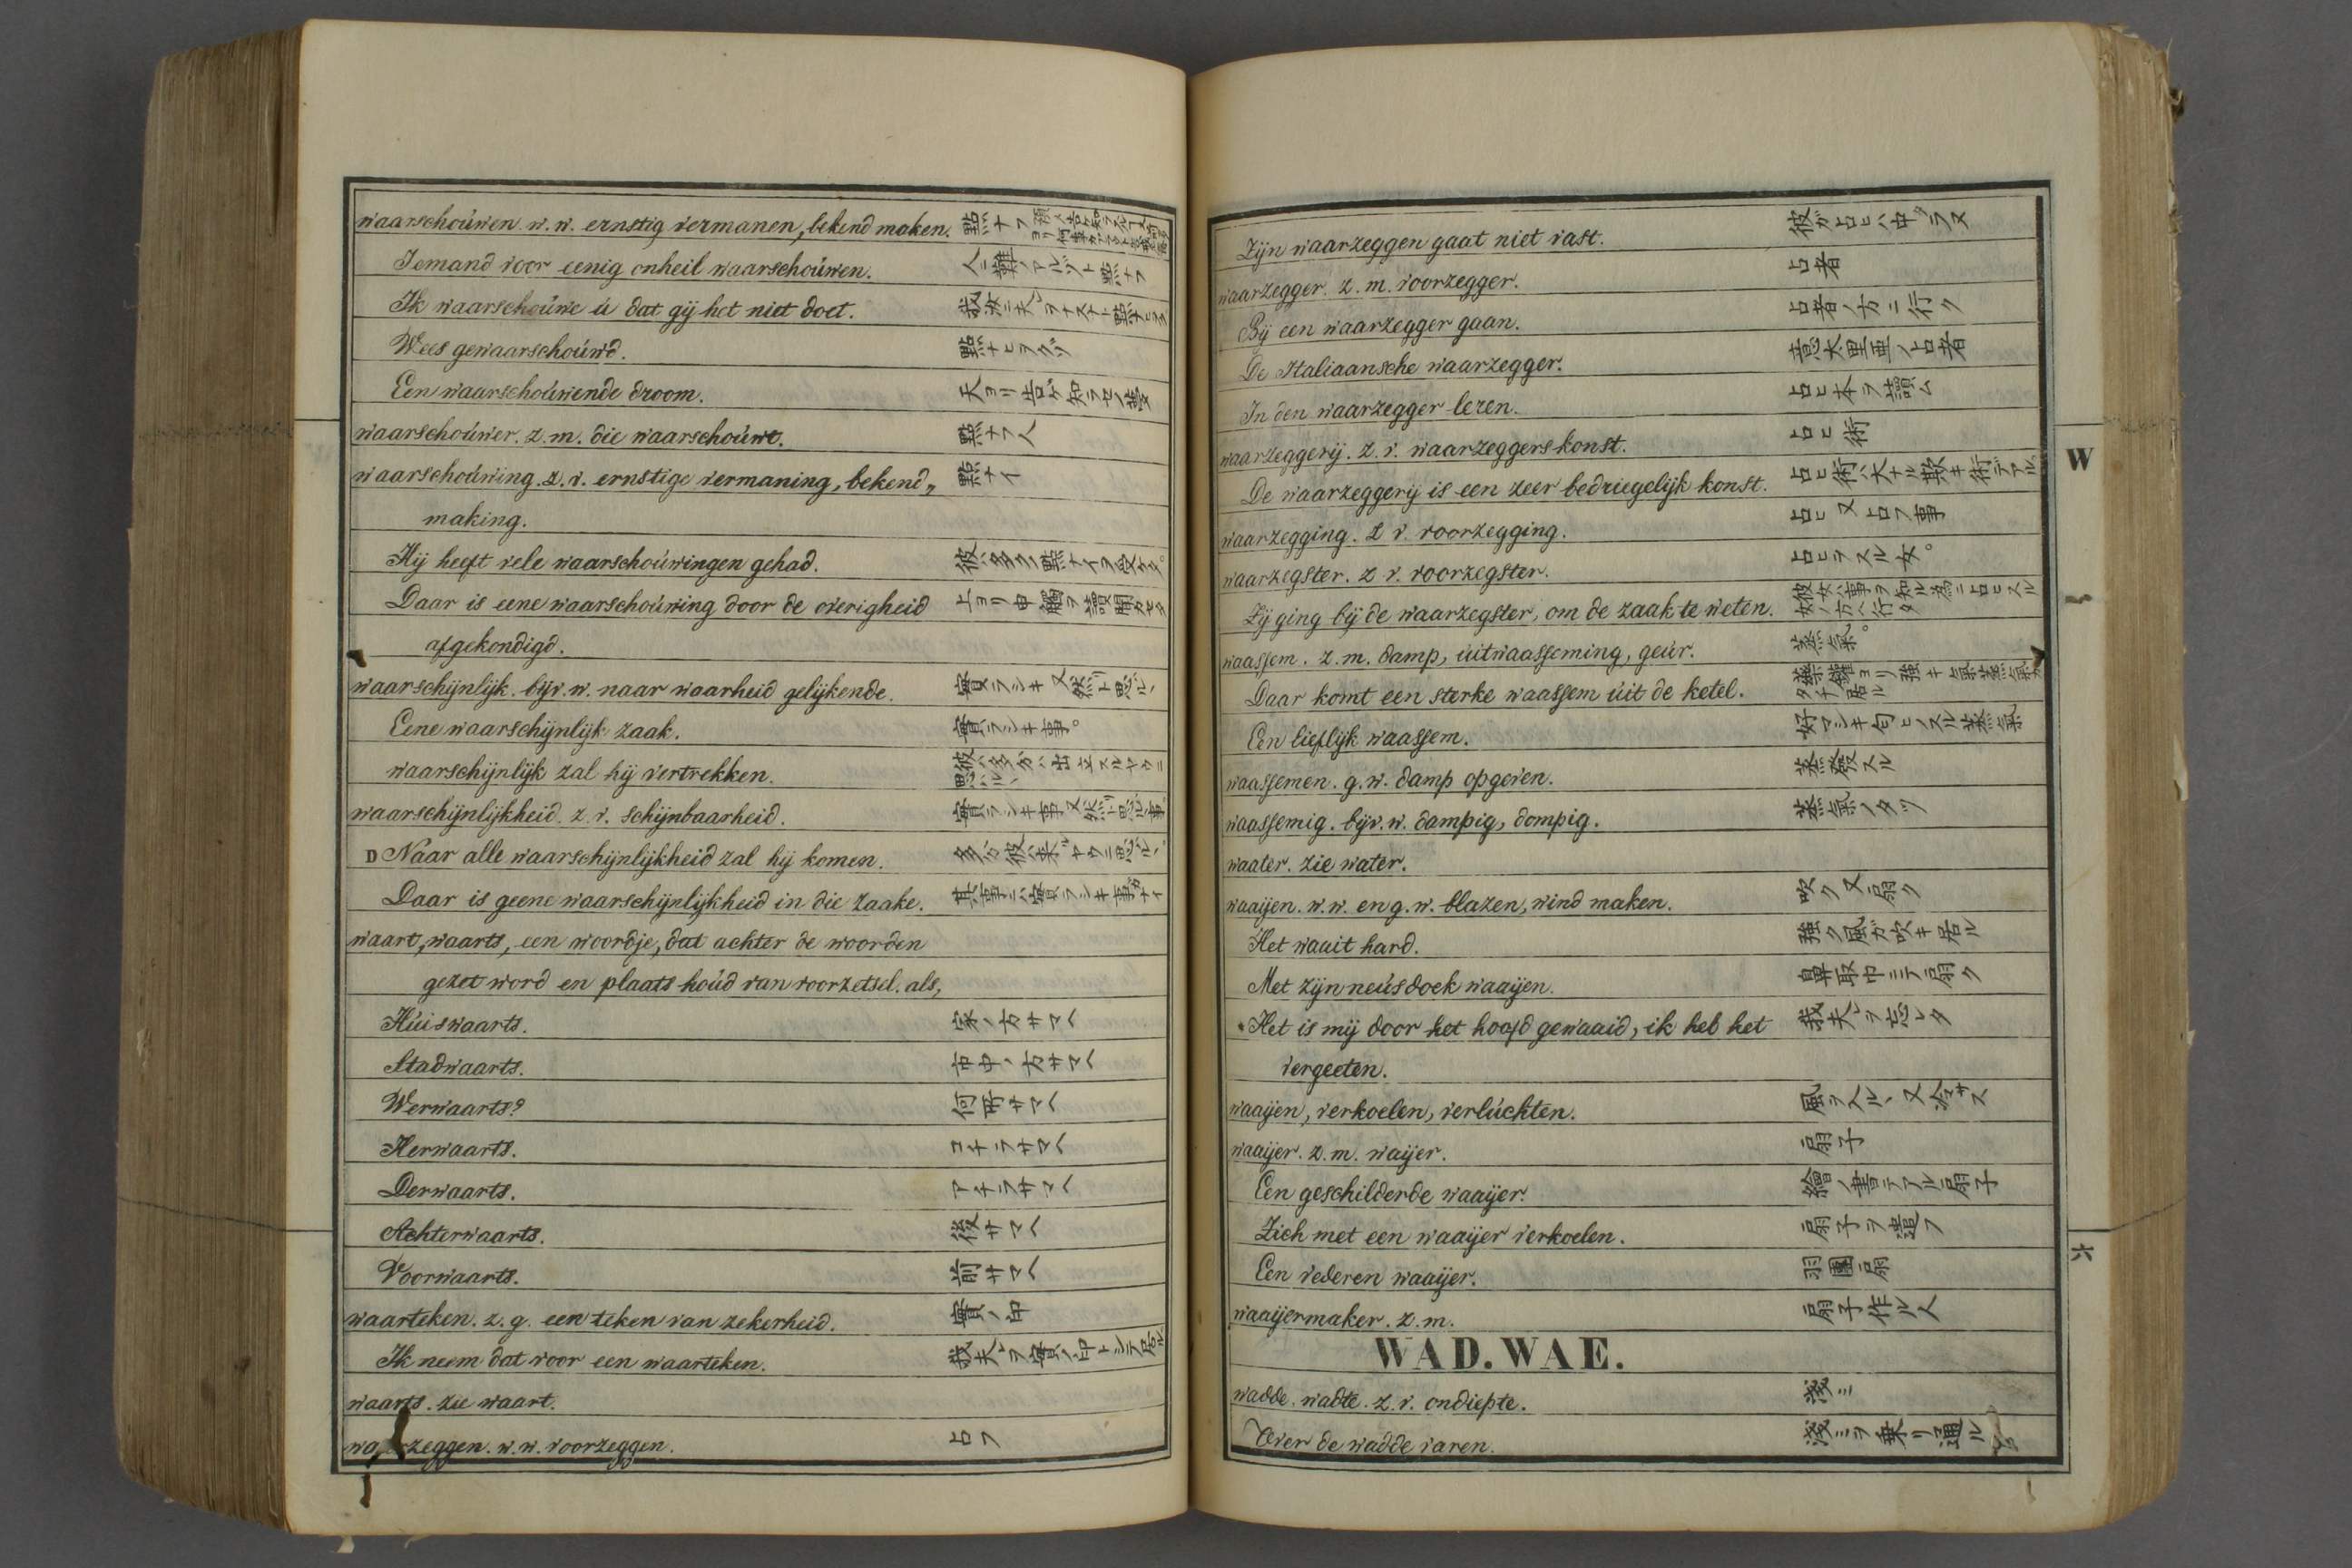 waarschoúwen. w.w. ernstig vermanen, bekend maken. 點ナフ
Iemand voor eenig onheil waarschoúwen. 人ニ難ノアルヿト點ナフ
Ik waarschoúwe ú dat gij het niet doet.
Wees gewaarschoúwd. 點ナヒヲクヅ
Een waarschoúwende droom. 天ヨリ告ゲ知ラセノ夢
waarschoúwer. z.m. die waarschoúwt. 點ナフ人
waarschoúwing. z.v. ernstige vermaning, bekend„ 點ナイ
making.
Hij heeft vele waarschoúwingen gehad. 彼ハ多ク點ナイヲ受ケタ。
Daar is eene waarschoúwing door de overigheid 上ヨリ申觸ヲ讀聞カセタ
afgekondigd.
waarschijnlijk. bijv.w. naar waarheid gelijkende. 實ラシキ又然リト思ハルヽ
Eene waarschijnlijk zaak. 實ラシキ事。
waarschijnlijk zal hij vertrekken. 彼ハ多分ハ出立スルヤウニ思ハルヽ
waarschijnlijkheid. z.v. schijnbaarheid. 實ラシキ事又然リト思ハル事
D Naar alle waarschijnlijkheid zal hij komen. 多分彼ハ来ルヤウニ思ハルヽ
Daar is geene waarschijnlijkheid in die zaake. 其事ニハ實ラシキ事ガナイ
waart, waarts, een woordje, dat achter de woorden
gezet word en plaats hoúd van voorzetsel. als,
Húiswaarts. 家ノ方サマヘ
Stadwaarts. 市中ノ方サマヘ
Werwaarts? 何所サマヘ
Herwaarts. コチラサマヘ
Derwaarts. アチラサマヘ
Achterwaarts. 後サマヘ
Voorwaarts. 前サマヘ
waarteken. z.g. een teken van zekerheid. 實ノ印
Ik neem dat voor een waarteken. 我夫レヲ實ノ印トシテ居ル
waarts. zie waart.
waarzeggen. w.w. voorzeggen. 占フ
Zijn waarzeggen gaat niet vast. 彼ガ占ヒハ中ラヌ
waarzegger. z.m. voorzegger. 占者
Bij een waarzegger gaan. 占者ノ方ニ行ク
De Italiaansche waarzegger. 意太里亜ノ占者
In den waarzegger lezen. 占ヒ本ヲ讀ム
waarzeggerij. z.v. waarzeggerskonst. 占ヒ術
De waarzeggerij is een zeer bedriegelijk konst. 占ヒ術ハ大ナル欺キ術デアル
waarzegging. z v. voorzegging. 占ヒ又占フ事
waarzegster. z v. voorzegster. 占ヒヲスル女。
Zij ging bij de waarzegster, om de zaak te weten. 彼女ハ事ヲ知ル為ニ占ヒスル女ノ方ヘ行タ
waassem. z.m. damp, úitwaasseming, geúr. 蒸氣。
Daar komt een sterke waassem úit de ketel. 藥鑵ヨリ強キ氣蒸氣ガタチ居ル
Een lieflijk waassem. 好マシキ匂ヒノスル蒸氣
waassemen. g.w. damp opgeven. 蒸發スル
waassemig. bijv.w. dampig, dompig. 蒸氣ノタツ
waater. zie water.
waaijen. w.w. en g.w. blazen, wind maken. 吹ク又扇ク
Het waait hard. 強ク風ガ吹キ居ル
Met zijn neúsdoek waaijen. 鼻取巾ニテ扇ク
* Het is mij door het hoofd gewaaid, ik heb het 我夫レヲ忘レタ
vergeeten.
waaijen, verkoelen, verlúchten. 風ヲ入ルヽ又冷サス
waaijer. z.m. waijer. 扇子
Een geschilderde waaijer. 繪ノ書テアル扇子
Zich met een waaijer verkoelen. 扇子ヲ遣フ
Een vederen waaijer. 羽團扇
waaijermaker. z.m. 扇子作ル人
WAD. WAE.
wadde. wadte. z.v. ondiepte. 淺ミ
Over de wadde varen. 淺ミヲ乗リ通ル
W
六